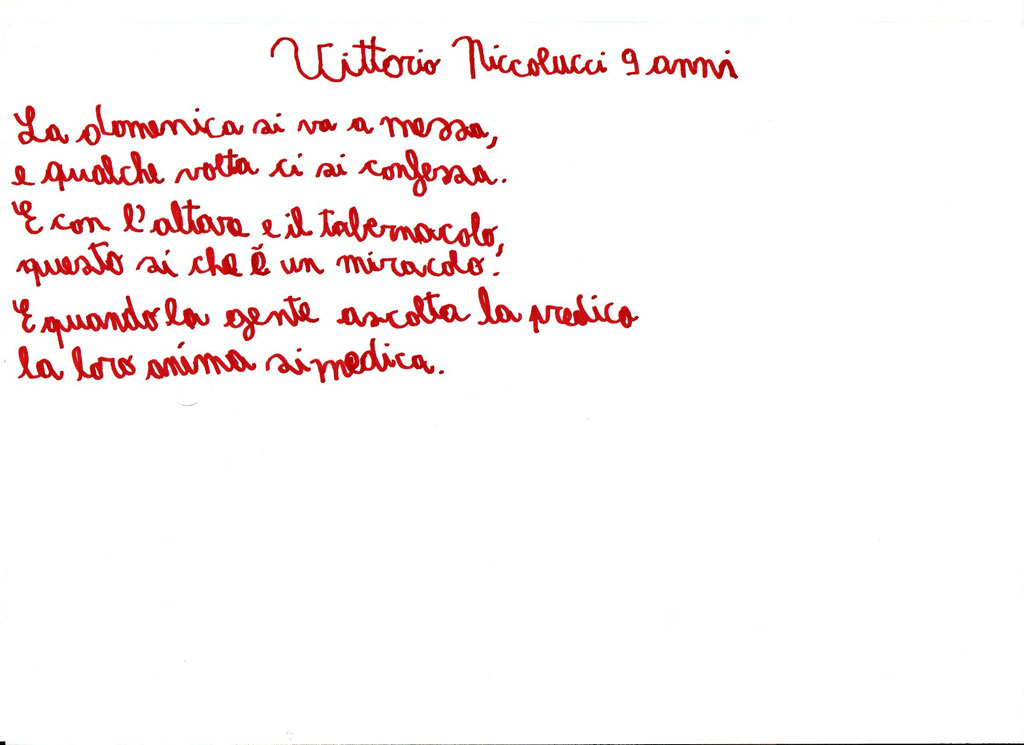 Vittorio Niccolucci 9 anni
La domenica si va a messa,
e qualche volta ci si confessa.
E con l'altare e il tabernacolo,
questo si che è un miracolo!
E quando la gente ascolta la predica
la loro anima si medica.